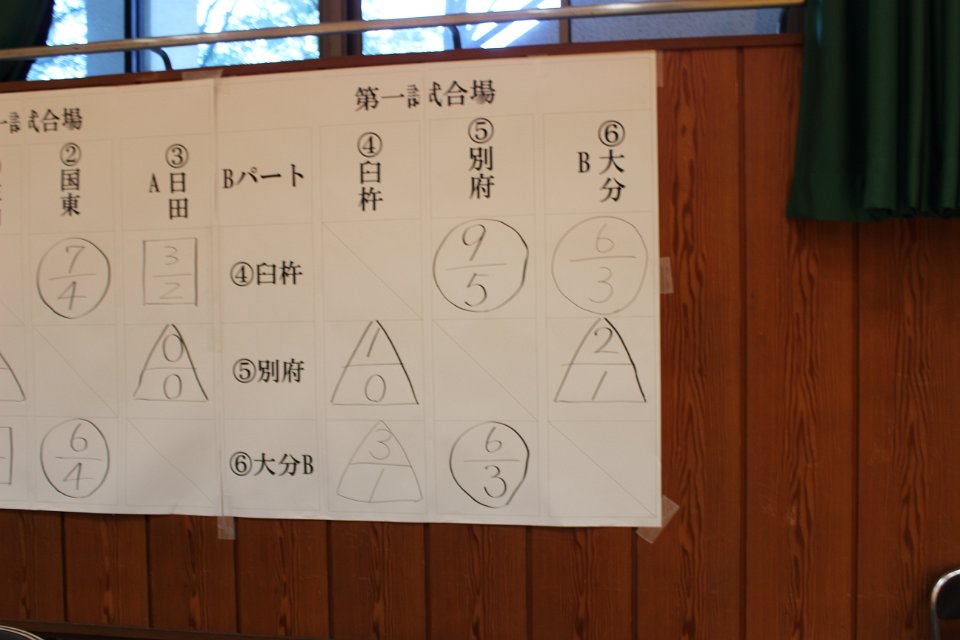 一試合場
第一試合場
②国東
③日田A
Bパート
④臼杵
⑤別府
⑥大分B
7/4
3/2
④臼杵
9/5
6/3
0/0
⑤別府
1/0
2/1
6/4
⑥大分B
3/1
6/3